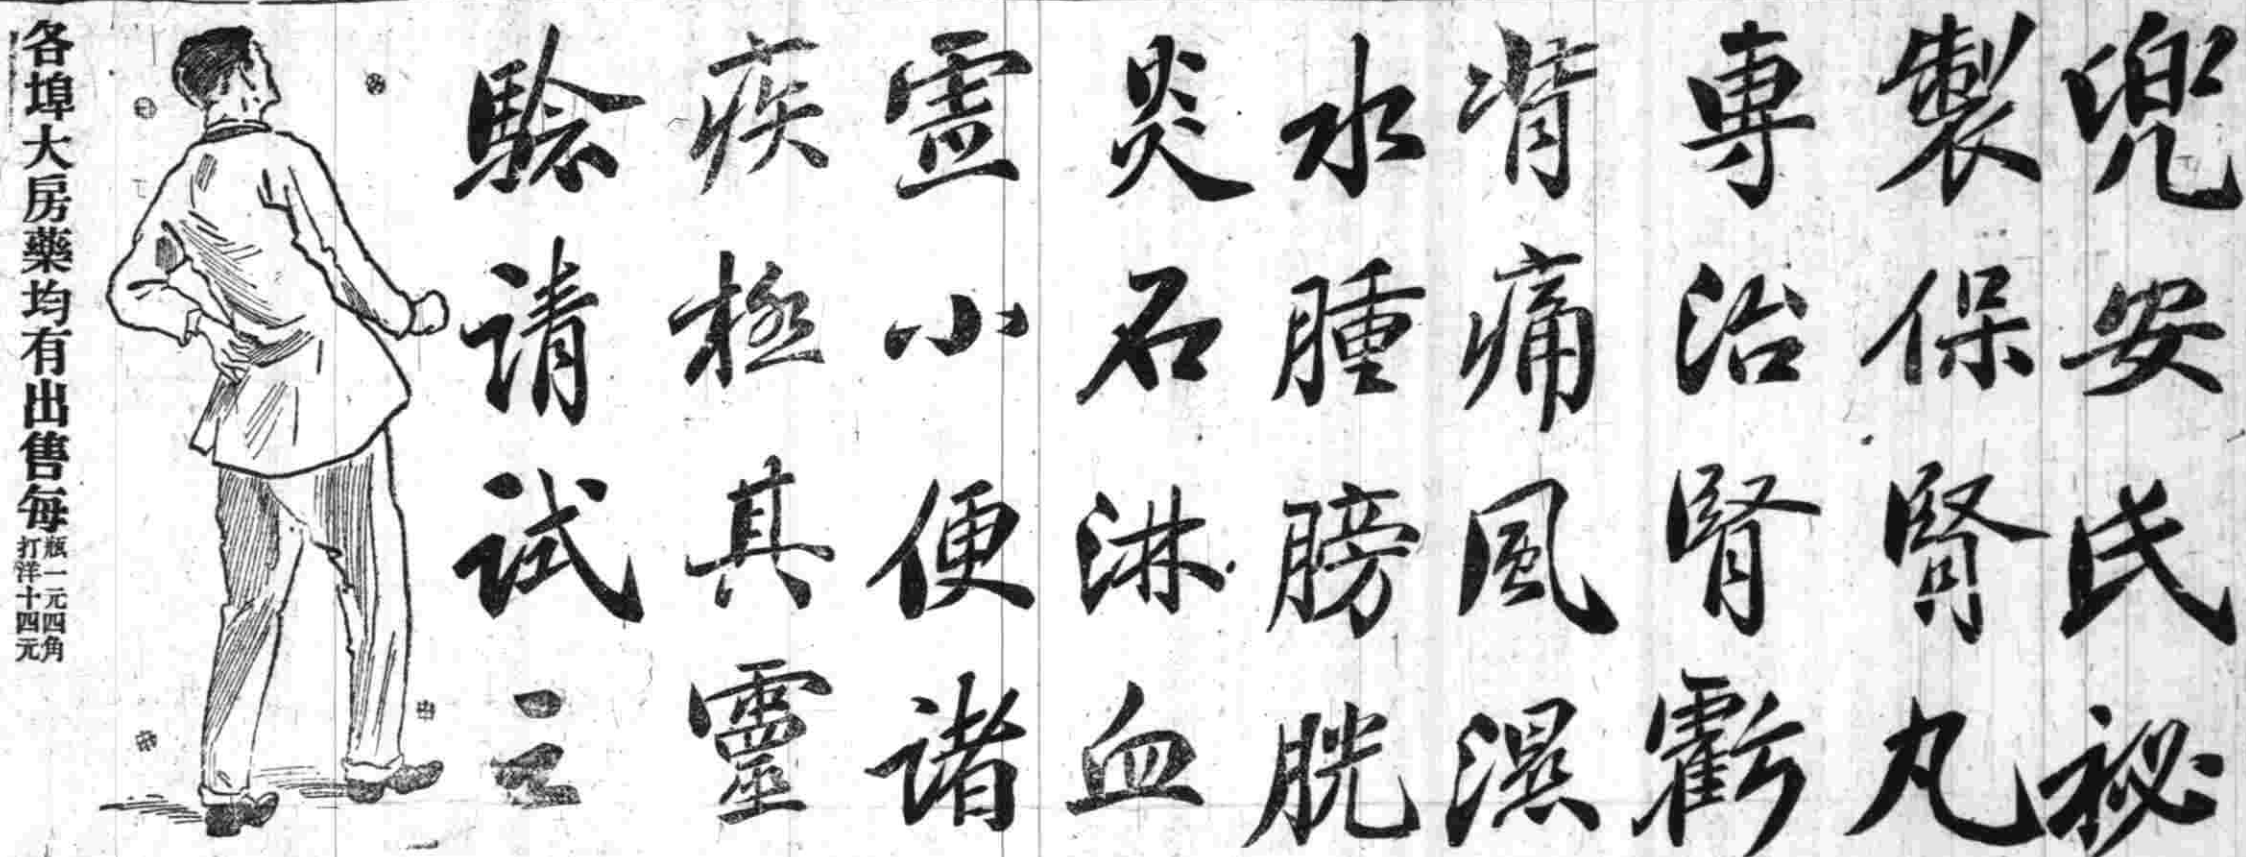 兜安氏祕
製保腎丸
專治腎虧
背痛風濕
水腫膀胱
炎石淋血
霊小便諸
疾極其靈
驗請試之
各埠大房藥均有出售每瓶一元四角
打洋十四元